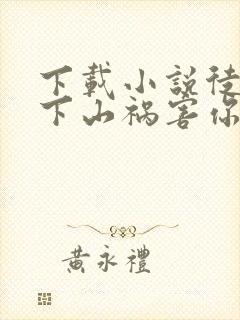 下載小說徒
下山禍害你
黃永禮